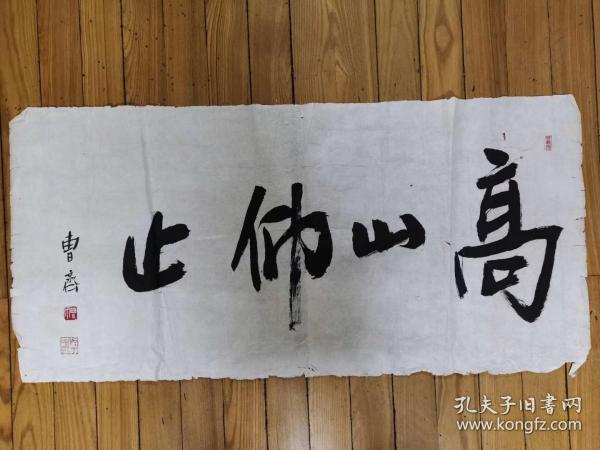 高山仰止
曹齊
孔夫子旧书网
www.kongfz.com